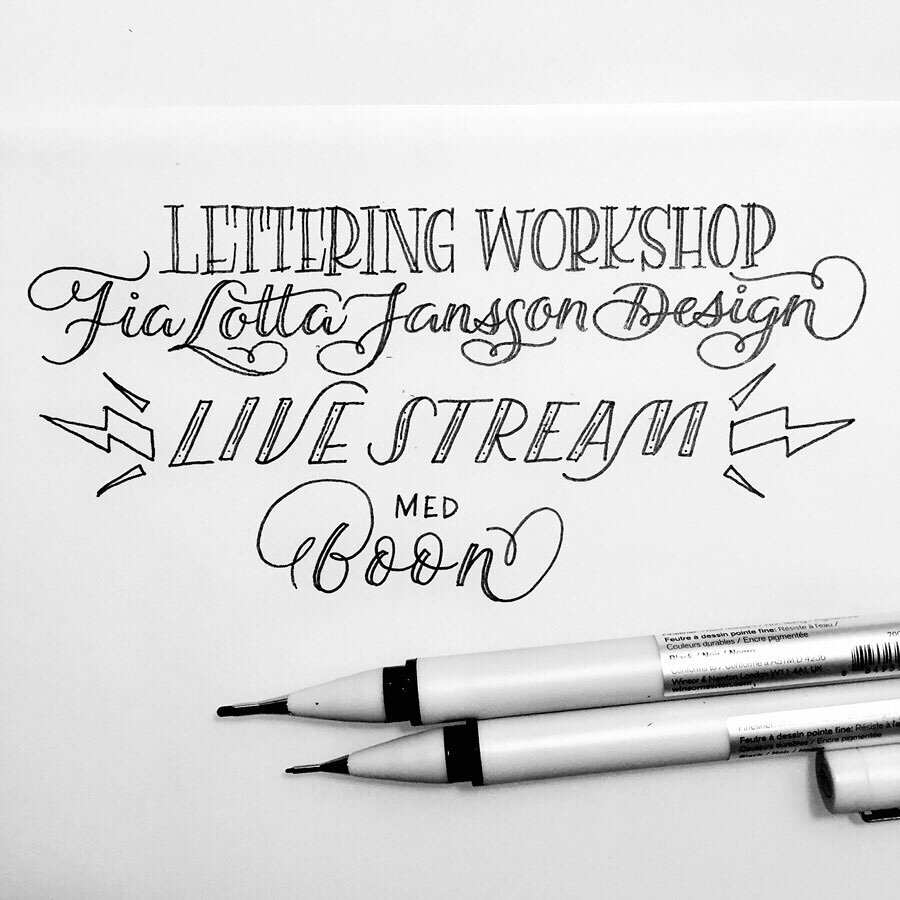 LETTERING WORKSHOP
Fia Lotta Jansson Design
LIVE STREAM
MED
Boon
Feutre à dessin pointe fine: Résiste à l'eau /
Couleurs durables / Encre pigmentée
Black / Noir / Negro
Conforms to / Conforme à ASTM D-4236
Winsor & Newton London W11 4AJ, UK
winsornewton.com
Feutre à dessin pointe fine: Résiste à
Couleurs durables / Encre
Black / Noir